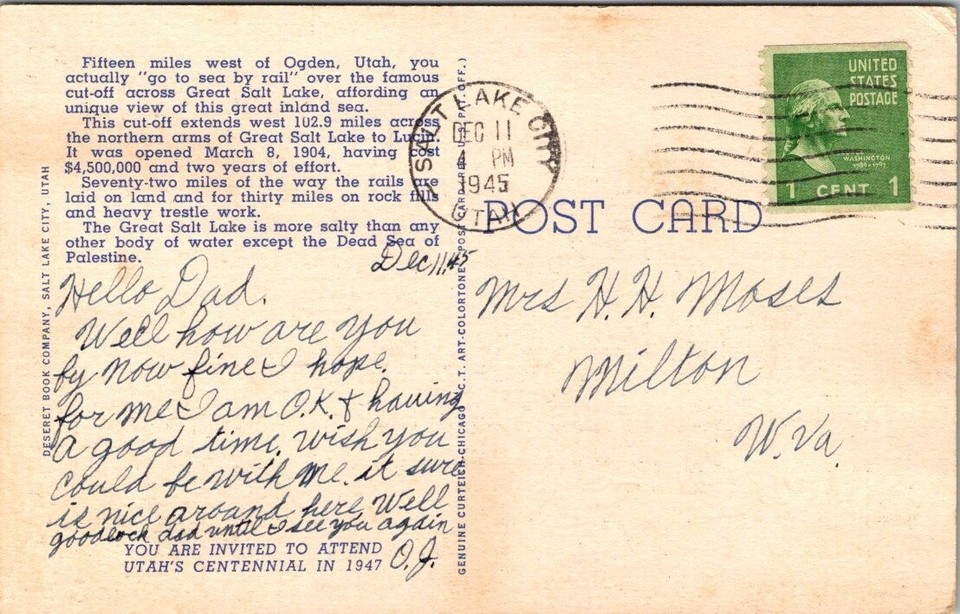 Fifteen miles west of Ogden, Utah, you
actually "go to sea by rail" over the famous
cut-off across Great Salt Lake, affording an
unique view of this great inland sea.
This cut-off extends west 102.9 miles across
the northern arms of Great Salt Lake to Lucin.
It was opened March 8, 1904, having cost
$4,500,000 and two years of effort.
Seventy-two miles of the way the rails are
laid on land and for thirty miles on rock fills
and heavy trestle work.
The Great Salt Lake is more salty than any
other body of water except the Dead Sea of
Palestine.
Dec 11, 45
Hello Dad.
Well how are you
by now fine I hope.
for me I am O.K. & having
a good time. wish you
could be with me. it sure
is nice around here Well
goodluck dad until I see you again
O.J.
YOU ARE INVITED TO ATTEND
UTAH'S CENTENNIAL IN 1947
DESERET BOOK COMPANY, SALT LAKE CITY, UTAH
GENUINE CURTEICH-CHICAGO "C.T. ART-COLORTONE" POST CARD (REG. U.S. PAT. OFF.)
SALT LAKE CITY
DEC 11
4 PM
1945
UTAH
POST CARD
UNITED
STATES
POSTAGE
WASHINGTON
1789-1797
1 CENT 1
Mrs H. H. Moses
Milton
W. Va.